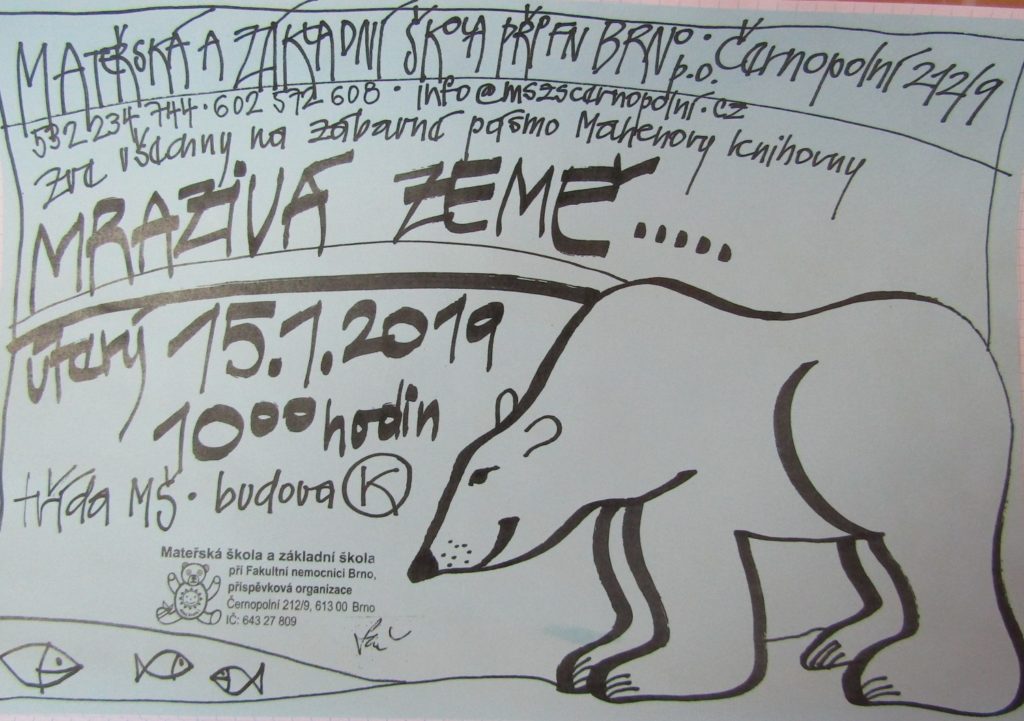 MATEŘSKÁ A ZÁKLADNÍ ŠKOLA PŘI FN BRNO • p.o. Černopolní 212/9
532 234 744 • 602 572 608 • info@mszscernopolni.cz
zve všechny na zábavné pásmo Mahenovy knihovny
MRAZIVÁ ZEMĚ.....
úterý 15.1.2019
10ºº hodin
třída MŠ • budova K
Mateřská škola a základní škola
při Fakultní nemocnici Brno,
příspěvková organizace
Černopolní 212/9, 613 00 Brno
IČ: 643 27 809